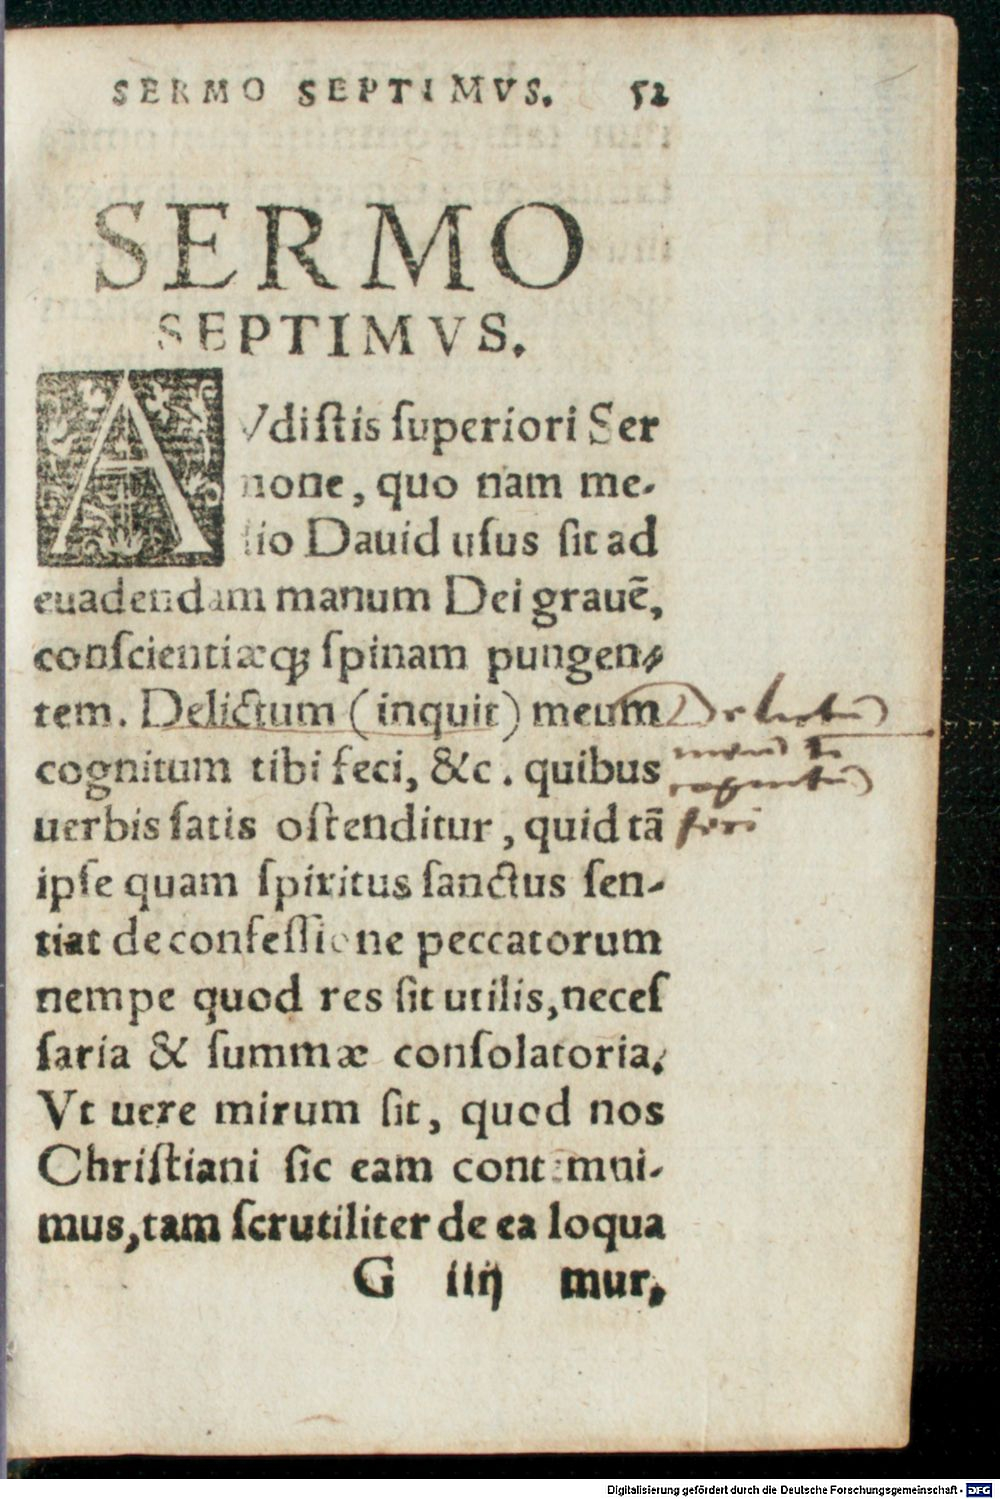 SERMO SEPTIMVS. 52
SERMO
SEPTIMVS.
AVdiſtis ſuperiori Ser
mone, quo nam me-
dio Dauid uſus ſit ad
euadendam manum Dei grauē,
conſcientiæq; ſpinam pungen-
tem. Delictum (inquit) meum
cognitum tibi feci, &c. quibus
uerbis ſatis oſtenditur, quid tā
ipſe quam ſpiritus ſanctus ſen-
tiat de confeſſione peccatorum
nempe quod res ſit utilis, neceſ
ſaria & ſummæ conſolatoria.
Vt uere mirum ſit, quod nos
Chriſtiani ſic eam contemni-
mus, tam ſcrutiliter de ea loqua
G iiij mur,
Delictū
meū ti
cognitū
feci
Digitalisierung gefördert durch die Deutsche Forschungsgemeinschaft - DFG